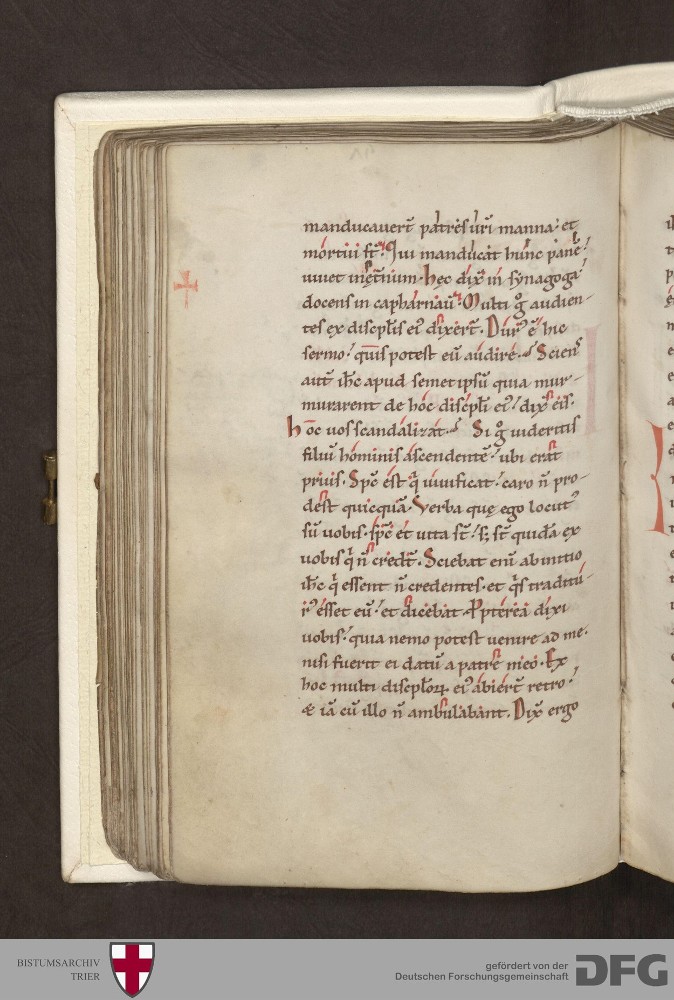 manducauerт̄ patres uri̅ manna·' et
mortui st̄. Qui manducat hunc panē·'
uiuet inet̄num. Hęc dix̄ in synagoga·'
docens in capharnaū. Multi gͦ audien-
tes ex discipl̄is ei᾿ dixer̄t. Dur᾿ ē hic
sermo·' quis potest eū audire. Scien᾿
aut̄ ih̅c apud semetipsū quia mur-
murarent de hoc discipl̄i ei᾿·' dix̄ eis.
hoc uos scandalizat. Si gͦ uideritis
filiū hominis ascendentē·' ubi erat
prius. Sp̅c est q̇ uiuificat·' caro n̄ pro-
dest quicquā. Verba quę ego locut᾿
sū uobis·' sp̅c et uita st̄·' s; st̄ quidā ex
uobis q̇ n̄ credt̄. Sciebat enī ab initio
ih̅c q̇ essent n̄ credentes· et q̇s traditu-
r᾿ esset eū·' et dicebat. Ppterea dixi
uobis·' quia nemo potest uenire ad me·
nisi fuerit ei datū a patre meo. Ex
hoc multi discipl̄oꝝ ei᾿ abier̄t retro·'
& iā cū illo n̄ ambulabant. Dix̄ ergo
BISTUMSARCHIV
TRIER
gefördert von der
Deutschen Forschungsgemeinschaft
DFG